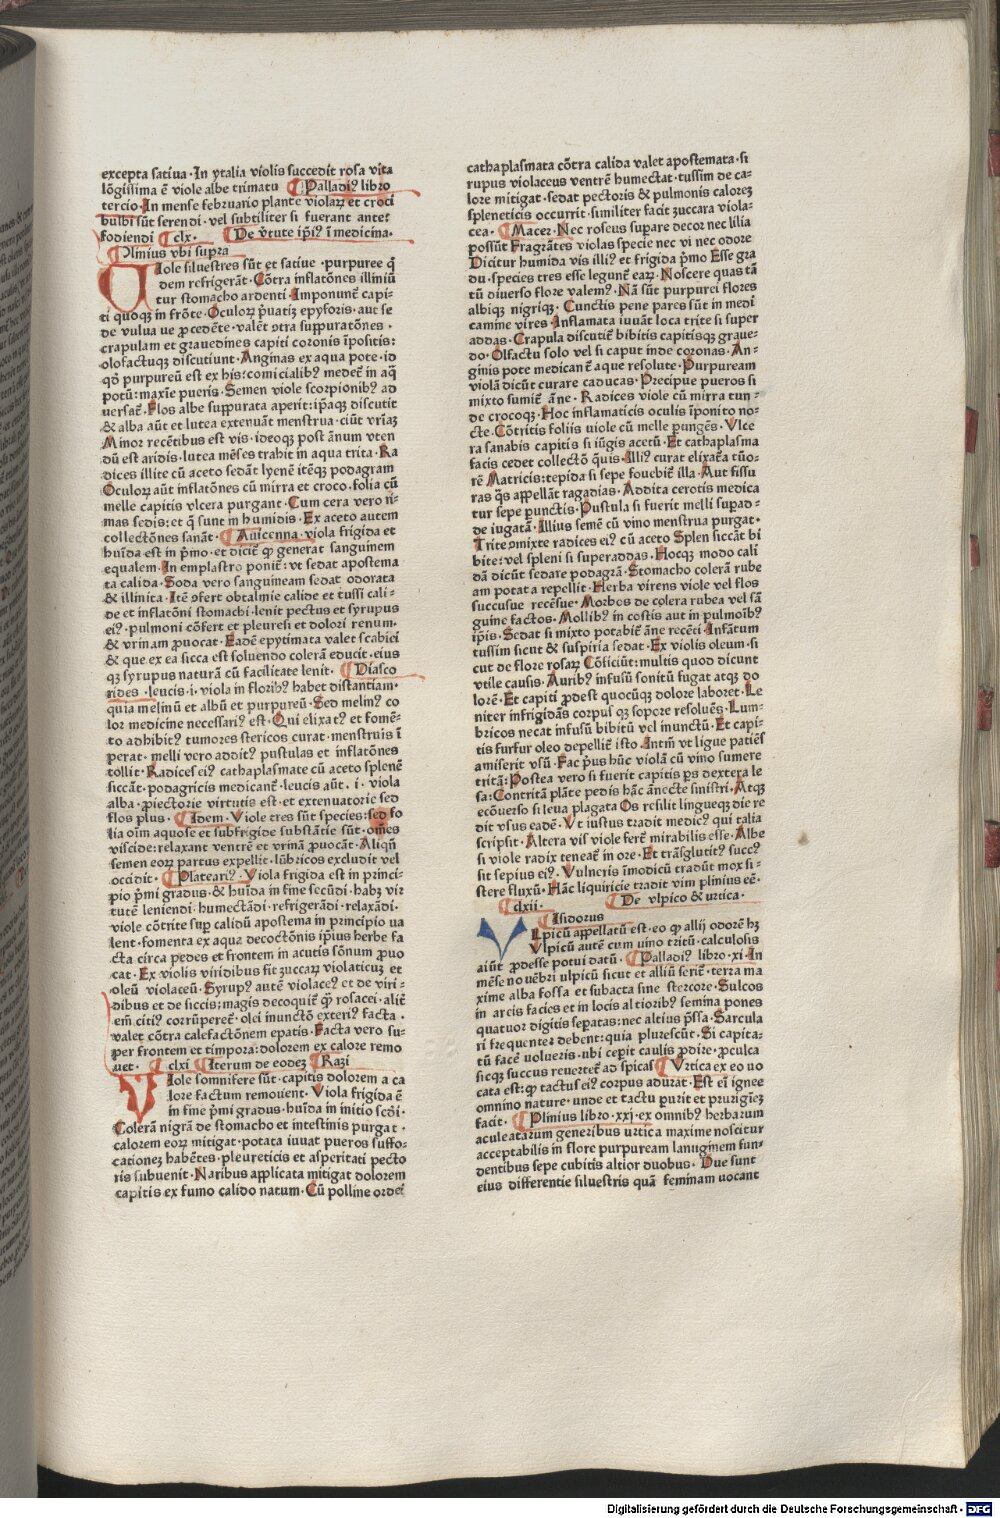 excepta satiua·In ytalia violis succedit rosa vita
lōgissima ē viole albe trimatu ¶Palladiꝰ libro
tercio·In mense februario plante violaꝝ et croci
bulbi sūt serendi·vel subtiliter si fuerant ante:
fodiendi ¶clx· ¶De v̄tute ip̄iꝰ ī medicina·
¶Plinius vbi supra
Uiole siluestres sūt et satiue·purpuree q̄
dem refrigerāt·Cōtra inflatōnes illiniū
tur stomacho ardenti·Imponunt̄ capi-
ti quoqꝫ in frōte·Oculoꝝ p̄uatiꝫ epyforis·aut se
de vulua ue ꝓcedēte·valēt ꝯtra suppuratōnes·
crapulam et grauedines capiti coronis īpositis:
olofactuqꝫ discutiunt·Anginas ex aqua pote·id
qđ purpureū est ex his:comicialibꝰ medet̄ in aq̄
potū:maxīe pueris·Semen viole scorpionibꝰ ad
uersat̄·Flos albe suppurata aperit:ip̄aqꝫ discutit
& alba aūt et lutea extenuāt menstrua·ciūt vrīaꝫ
Minoꝛ recētibus est vis·ideoqꝫ post ānum vten
dū est aridis·lutea mēses trahit in aqua trita·Ra
dices illite cū aceto sedāt lyenē itēqꝫ podagram
Oculoꝝ aūt inflatōnes cū mirra et croco·folia cū
melle capitis vlcera purgant·Cum cera vero ri-
mas sedis:et q̄ sunt in humidis·Ex aceto autem
collectōnes sanāt·¶Auicenna·viola frigida et
huīda est in p̄mo·et diciē qꝫ generat sanguinem
equalem·In emplastro poniē:vt sedat apostema
ta calida·Soda vero sanguineam sedat odorata
& illinita·Itē ꝯfert obtalmie calide et tussi cali-
de et inflatōni stomachi·lenit pectus et syrupus
eiꝰ·pulmoni cōfert et pleuresi et dolori renum·
& vrinam ꝓuocat·Eadē epytimata valet scabiei
& que ex ea sicca est soluendo colerā educit·eius
qꝫ syrupus naturā cū facilitate lenit·¶Diasco
rides·leucis·i·viola in floribꝰ habet distantiam·
quia melinū et albū et purpureū·Sed melinꝰ co
lor medicine necessariꝰ est·Qui elixatꝰ et fomē-
to adhibitꝰ tumores stericos curat·menstruis ī
perat·melli vero additꝰ pustulas et inflatōnes
tollit·Radices eiꝰ cathaplasmate cū aceto splenē
siccāt·podagricis medicant̄·leucis aūt·i·viola
alba·ꝓiectorie virtutis est·et extenuatorie sed
flos plus·¶Idem·Viole tres sūt species:sed fo
lia oīm aquose et subfrigide substātie sūt·om̄es
viscide:relaxant ventrē et vrinā ꝓuocāt·Aliqn̄
semen eoꝝ partus expellit·lūbricos excludit vel
occidit·¶Plateariꝰ·Viola frigida est in princi-
pio p̄mi gradus·& huīda in fine secūdi·habꝫ vir
tutē leniendi·humectādi·refrigerādi·relaxādi·
viole cōtrite suꝑ calidū apostema in principio ua
lent·fomenta ex aqua decoctōnis ip̄ius herbe fa
cta circa pedes et frontem in acutis sōnum ꝓuo
cat·Ex violis viridibus fit zuccaꝝ violaticuꝫ et
oleū violaceū·Syrupꝰ autē violaceꝰ et de viri-
dibus et de siccis:magis decoquiē qꝫ rosacei·alit̄
em̄ citiꝰ corrūperet̄·olei inunctō exteriꝰ facta·
valet cōtra calefactōnem epatis·Facta vero su-
per frontem et timpora:dolorem ex calore remo
uet· ¶clxi ¶Iterum de eodeꝫ ¶Razi
Viole somnifere sūt·capitis dolorem a ca
lore factum remouent·Viola frigida ē
in fine p̄mi gradus·huīda in initio scd̄i·
Colerā nigrā de stomacho et intestinis purgat·
calorem eoꝝ mitigat·potata iuuat pueros suffo-
cationeꝫ habētes·pleureticis et asperitati pecto
ris subuenit·Naribus applicata mitigat dolorem
capitis ex fumo calido natum·Cū polline ordei
cathaplasmata cōtra calida valet apostemata·si
rupus violaceus ventrē humectat·tussim de ca-
lore mitigat·sedat pectoris & pulmonis caloreꝫ
spleneticis occurrit·similiter facit zuccara viola-
cea·¶Macer·Nec roseus supare decor nec lilia
possūt Fragrātes violas specie nec vi nec odore
Dicitur humida vis illiꝰ et frigida p̄mo Esse gra
du·species tres esse legunt̄ eaꝝ·Noscere quas tā
tū diuerso flore valemꝰ·Nā sūt purpurei flores
albiqꝫ nigriqꝫ·Cunctis pene pares sūt in medi
camine vires·Inflamata iuuāt loca trite si super
addas·Crapula discutit̄ bibitis capitisqꝫ graue-
do·Olfactu solo vel si caput inde coronas·An-
ginis pote medicant̄ aque resolute·Purpuream
violā dicūt curare caducas·Precipue pueros si
mixto sumiē āne·Radices viole cū mirra tun-
de crocoqꝫ·Hoc inflamaticis oculis īponito no-
cte·Cōtritis foliis viole cū melle pungēs·Vlce
ra sanabis capitis si iūgis acetū·Et cathaplasma
facis cedet collectō q̄uis·Illiꝰ curat elixat̄a tūo-
rē Matricis:tepida si sepe fouebit̄ illa·Aut fissu
ras q̄s appellāt ragadias·Addita cerotis medica
tur sepe ꝑunctis·Pustula si fuerit melli suꝑad-
de iugatā·Illius semē cū vino menstrua purgat·
Trite ꝯmixte radices eiꝰ cū aceto Splen siccāt bi
bite:vel spleni si superaddas·Hocqꝫ modo cali
dā dicūt sedare podagrā·Stomacho colerā rube
am potata repellit·Herba virens viole vel flos
succusue recēsue·Morbos de colera rubea vel sā
guine factos·Mollibꝰ in costis aut in pulmoībꝰ
ip̄is·Sedat si mixto potabiē āne recēti·Infātum
tussim sicut & suspiria sedat·Ex violis oleum·si
cut de flore rosaꝝ Cōficiūt:multis quod dicunt
vtile causis·Auribꝰ infusū sonitū fugat atqꝫ do
lorē·Et capiti ꝓdest quocūqꝫ dolore laboret·Le
niter infrigidās corpus qꝫ sopore resoluēs·Lum-
bricos necat infusū bibitū vel inunctū·Et capi-
tis furfur oleo depellit̄ isto·Intm̄ vt ligue patiēs
amiserit vsū·Fac p̄us hūc violā cū vino sumere
tritā:Postea vero si fuerit capitis ꝑs dextera le
sa:Contritā plāte pedis hāc ānecte sinistri·Atqꝫ
ecōuerso si leua plagata Os resilit lingueqꝫ die re
dit vsus eadē·Vt iustus tradit medicꝰ qui talia
scripsit·Altera vis viole fert̄ mirabilis esse·Albe
si viole radix teneat̄ in ore·Et trāsglutitꝰ succꝰ
sit sepius eiꝰ·Vulneris īmodicū tradūt mox si-
stere fluxū·Hāc liquiricie tradit vim plinius eē·
¶clxii· ¶De vlpico & urtica·
¶Isidorus
Vlpicū appellatū est·eo qꝫ allij odorē hꝫ
Vlpicū autē cum uino tritū·calculosis
aiūt ꝓdesse potui datū·¶Palladiꝰ libro·xi·In
mēse nouēbri ulpicū sicut et alliū seriē·terra ma
xime alba fossa et subacta sine stercore·Sulcos
in areis facies et in locis altioribꝰ semina pones
quatuor digitis seꝑatas:nec altius p̄ssa·Sarcula
ri frequenter debent:quia plurescūt·Si capita-
tū facē uolueris·ubi cepit caulis ꝓdire·ꝓculca
sicqꝫ succus reuertet̄ ad spicas ¶Vrtica ex eo uo
cata est:qꝫ tactus eiꝰ corpus adurat·Est eī ignee
omnino nature·unde et tactu ꝑurit et prurigīeꝫ
facit·¶Plinius libro·xxj·ex omnibꝰ herbarum
aculeatarum generibus urtica maxime noscitur
acceptabilis in flore purpuream lanuginem fun-
dentibus sepe cubitis altior duobus·Due sunt
eius differentie siluestris quā feminam uocant
Digitalisierung gefördert durch die Deutsche Forschungsgemeinschaft - DFG